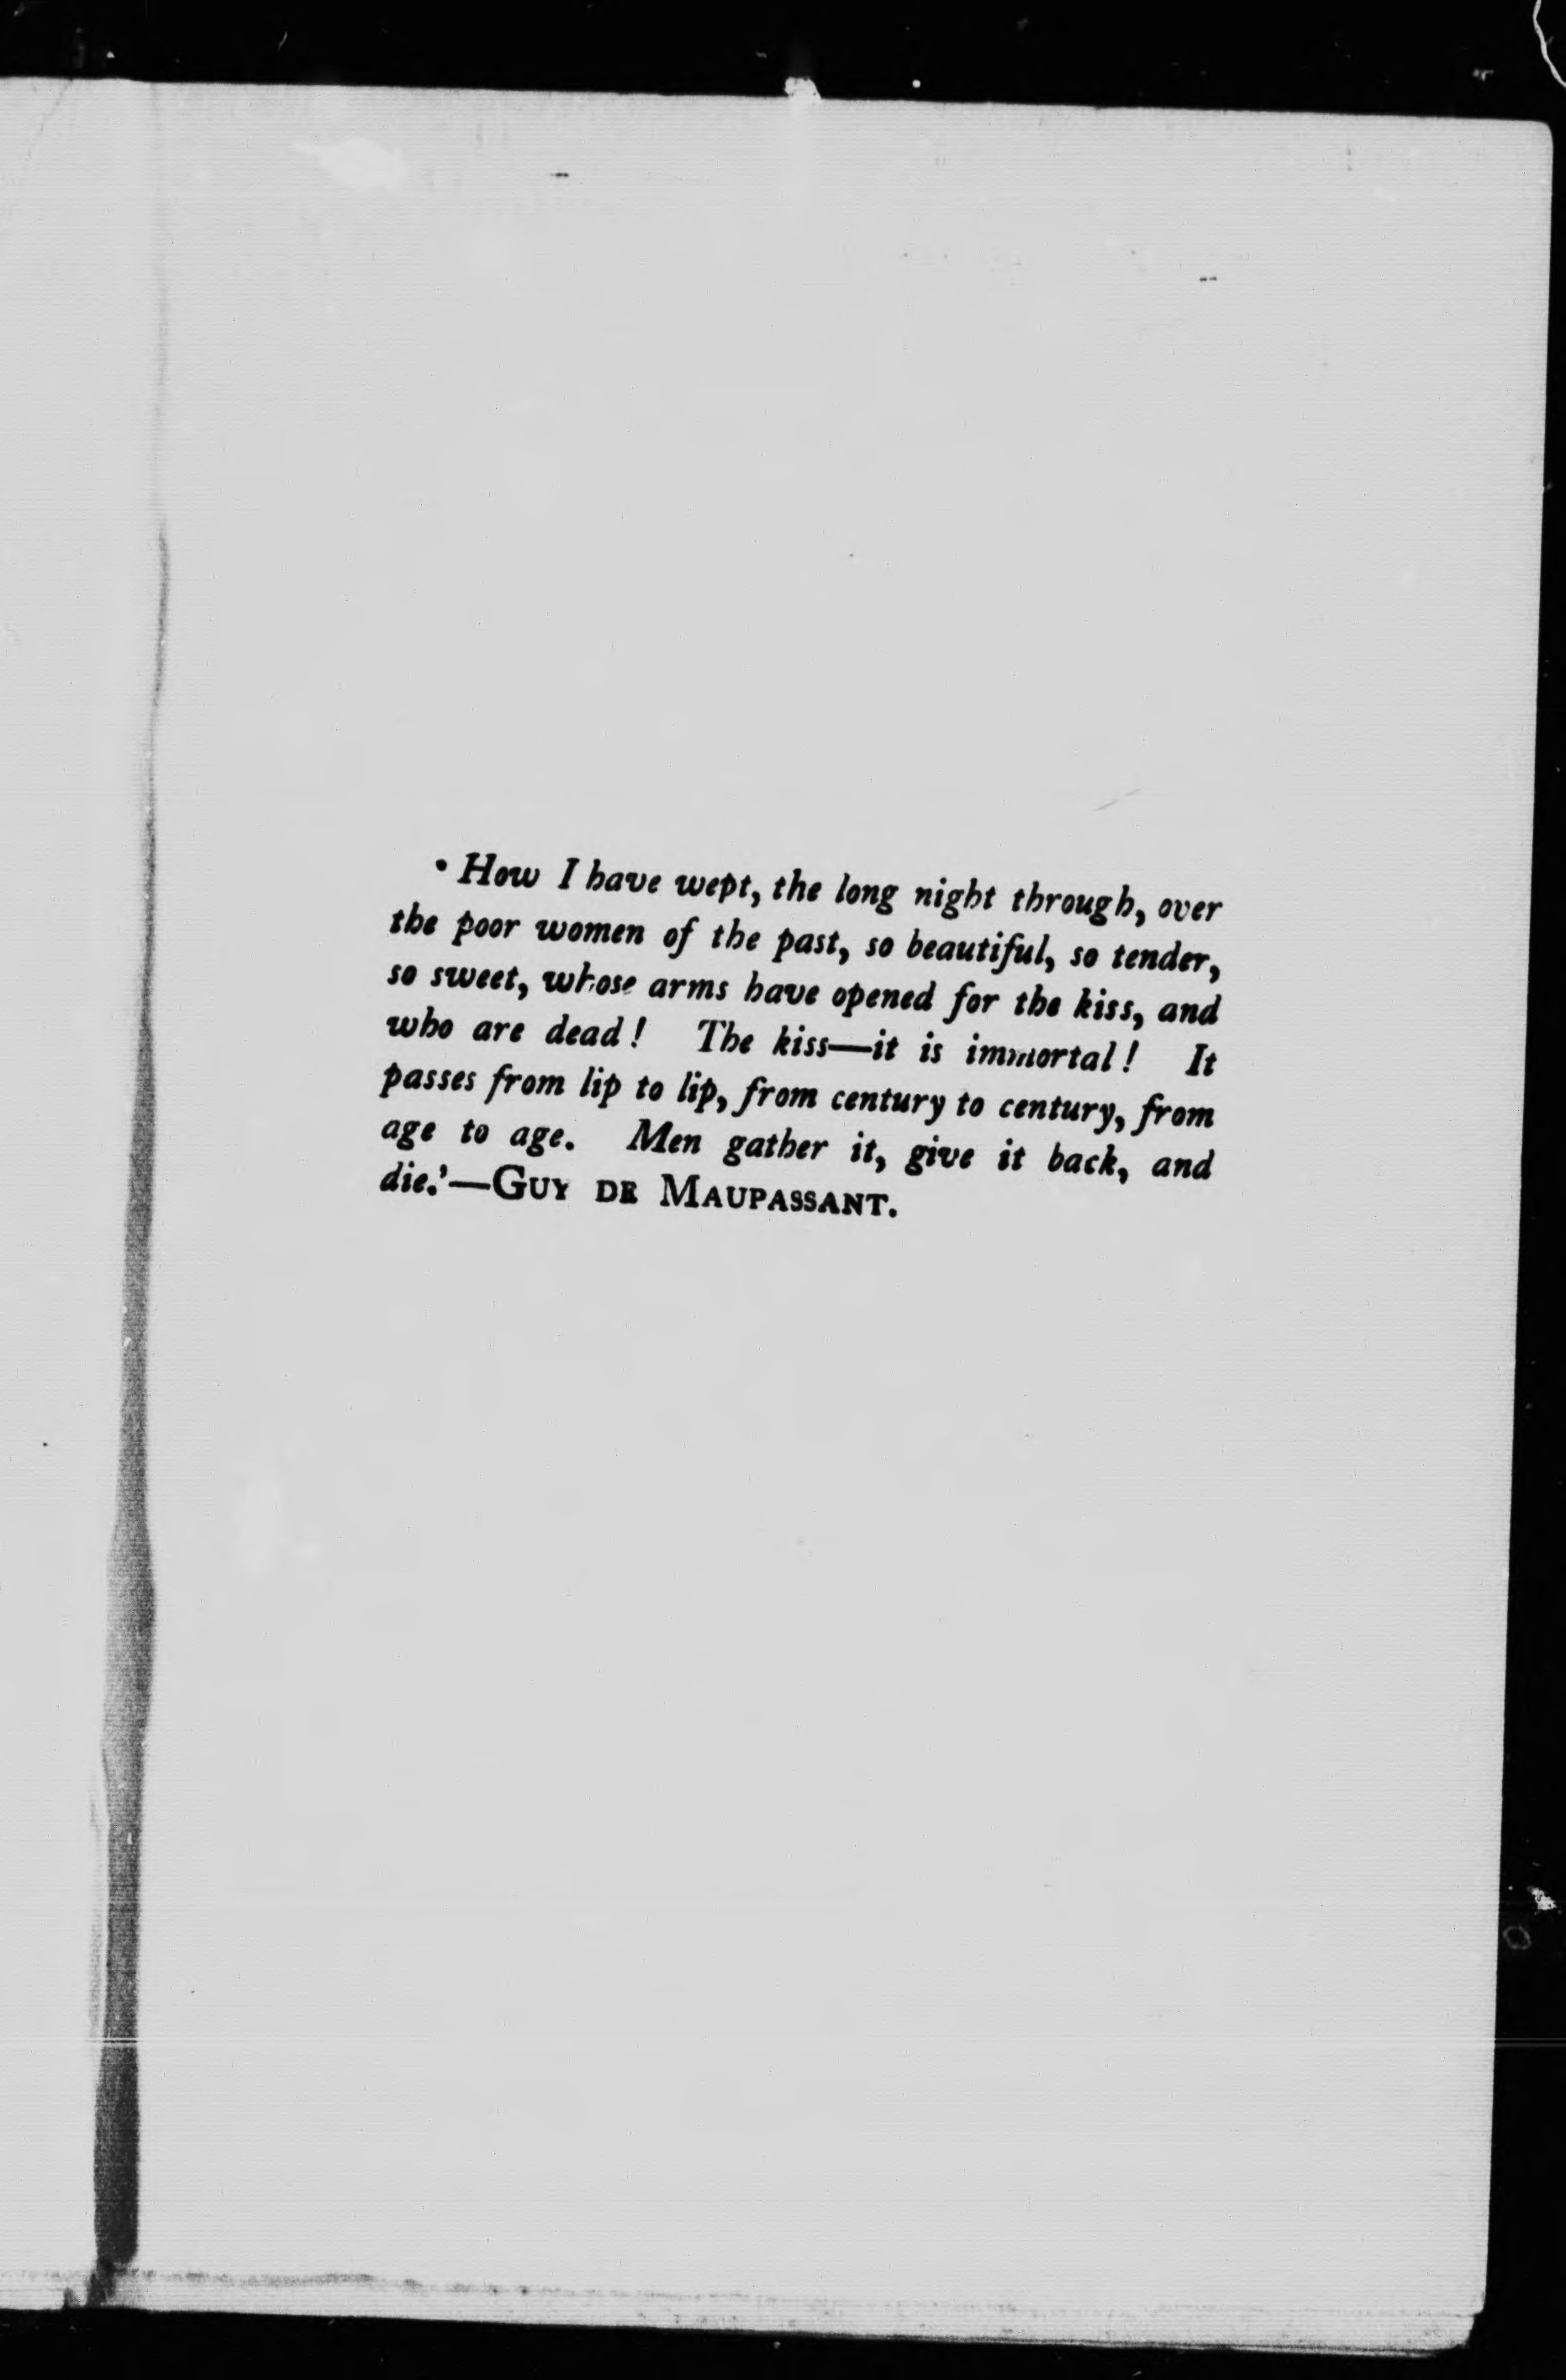 ‘How I have wept, the long night through, over
the poor women of the past, so beautiful, so tender,
so sweet, whose arms have opened for the kiss, and
who are dead! The kiss—it is immortal! It
passes from lip to lip, from century to century, from
age to age. Men gather it, give it back, and
die.’—GUY DE MAUPASSANT.